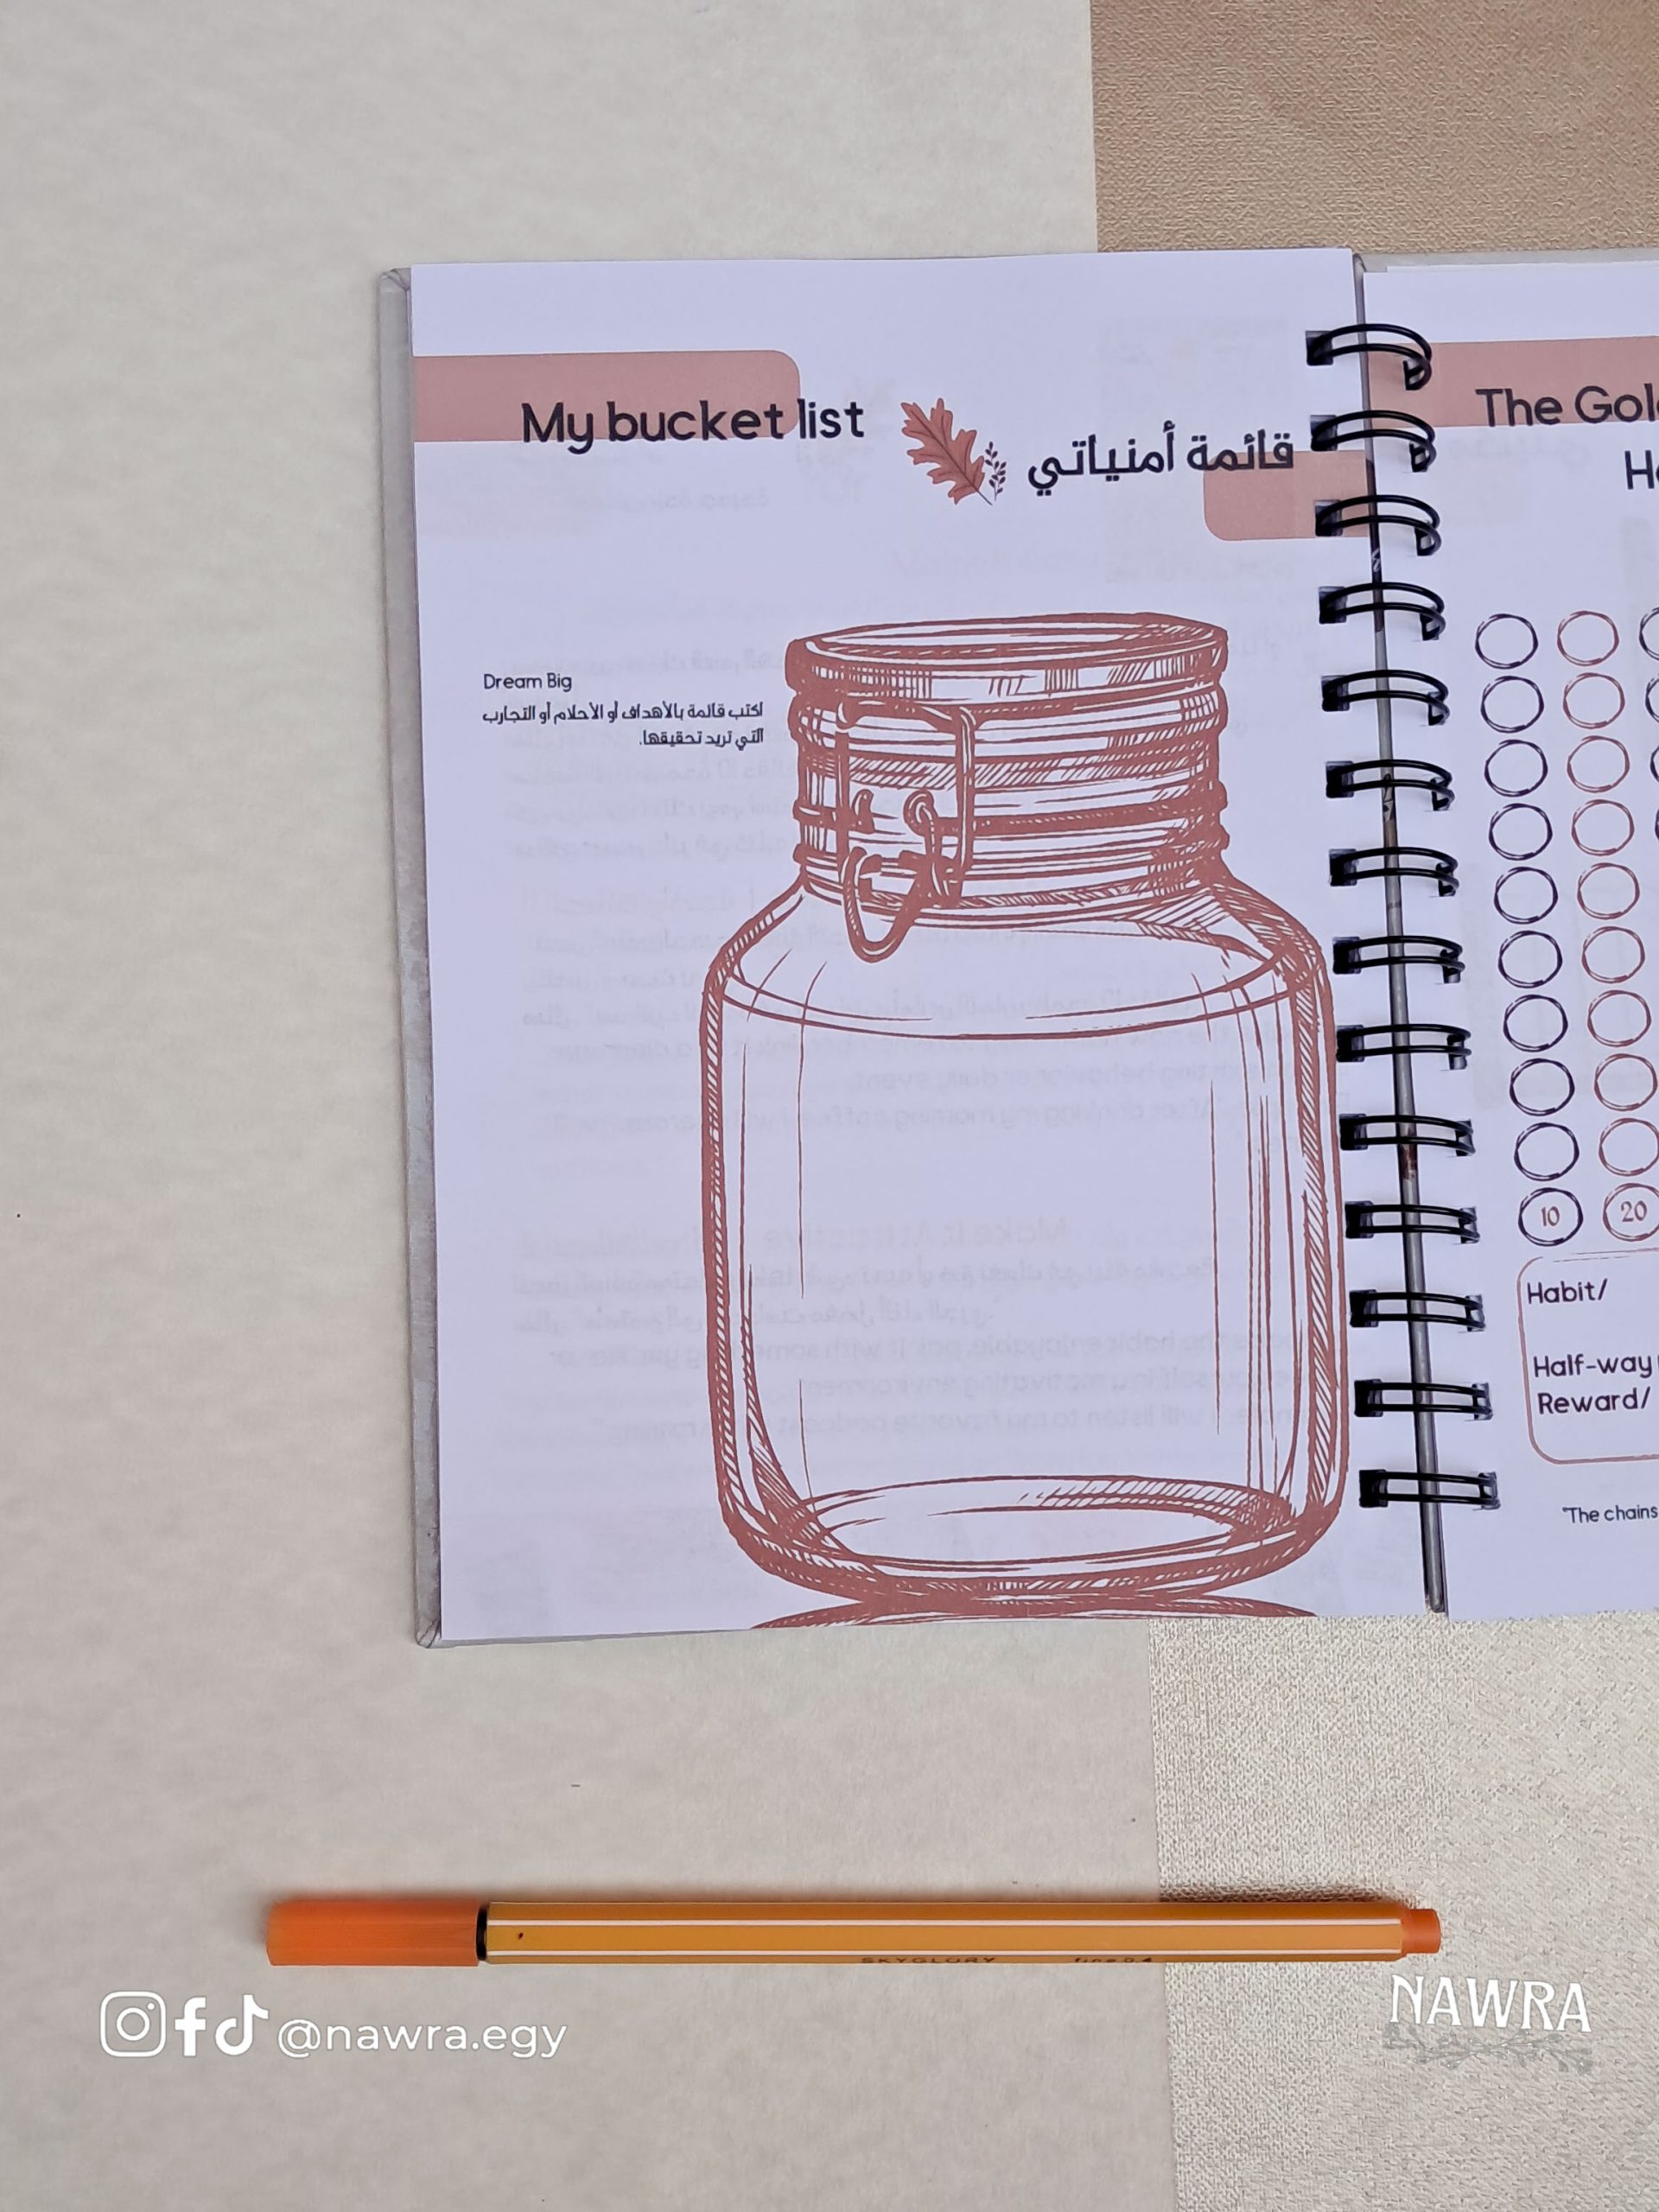 My bucket list
قائمة أمنياتي
Dream Big
اكتب قائمة بالأهداف أو الأحلام أو التجارب
التي تريد تحقيقها.
The
10
20
Habit/
Half-way
Reward/
"The chains
SKYGLORY fine 0.4
@nawra.egy
NAWRA